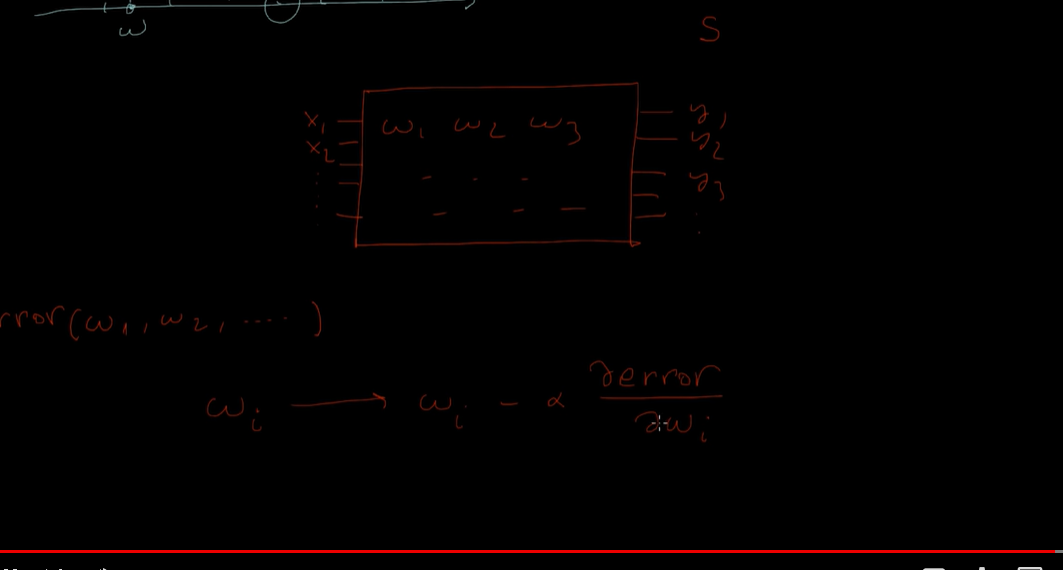 ω
S
x₁ ω₁ ω₂ ω₃ y₁
x₂ y₂
y₃
rror(ω₁, ω₂, ....)
ωᵢ → ωᵢ - α ∂error/∂ωᵢ